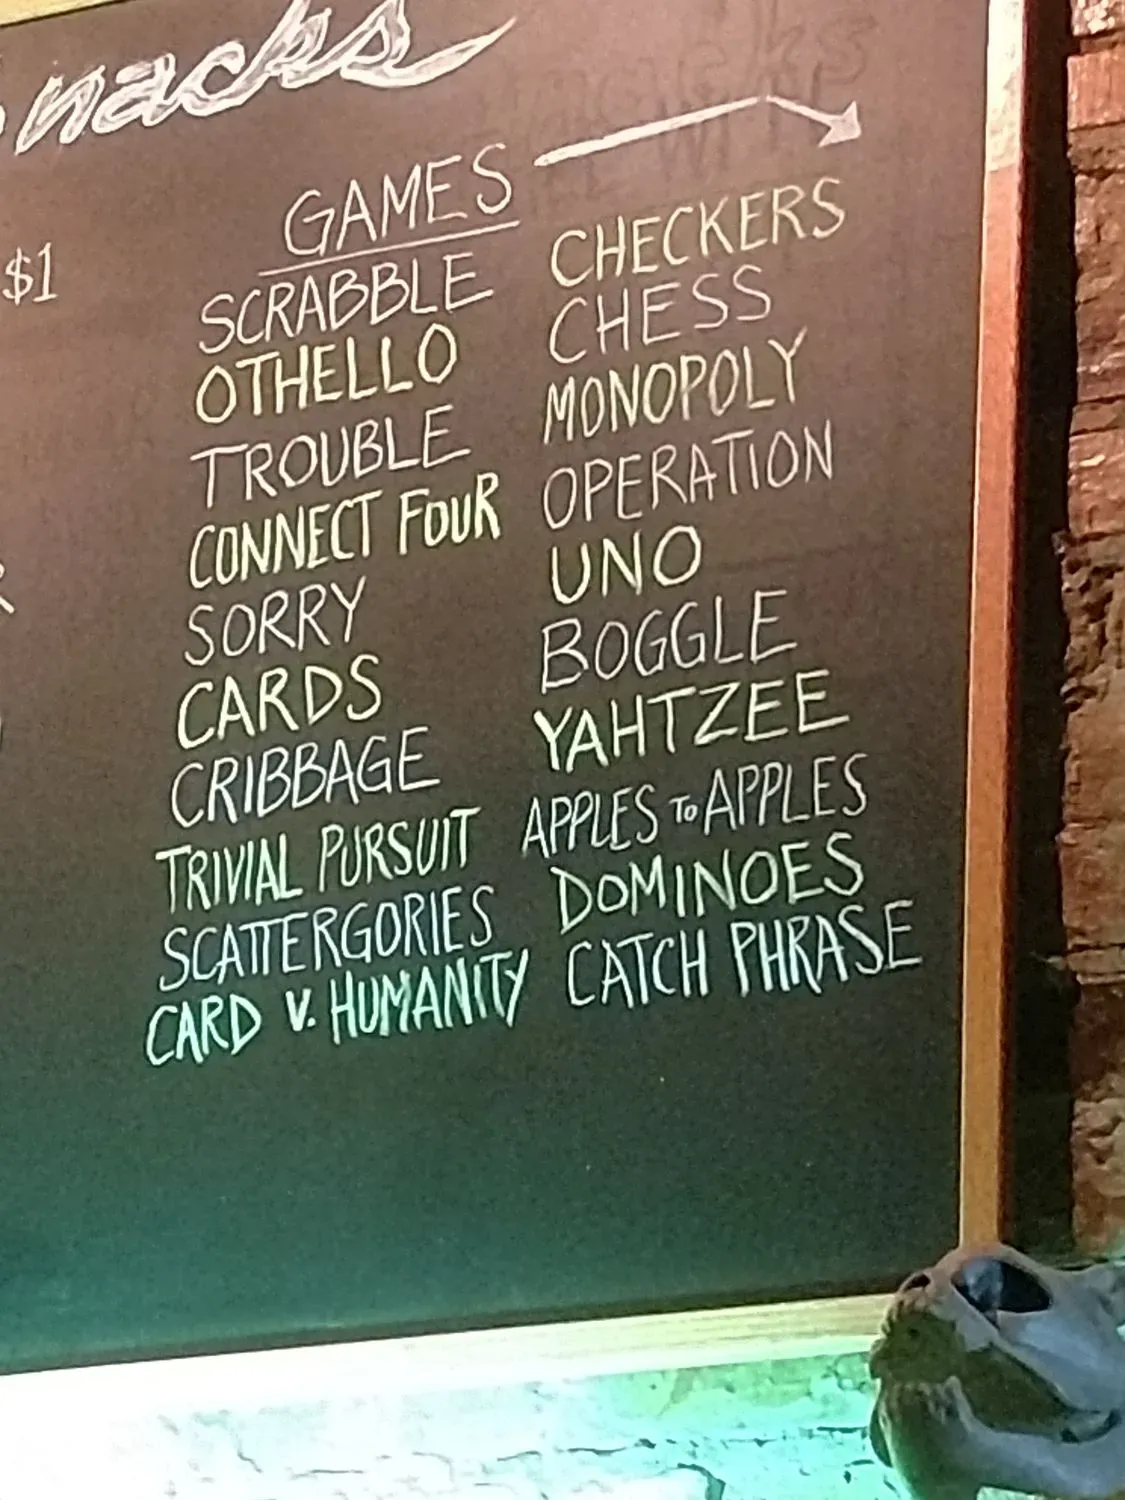 nacks
$1
GAMES
SCRABBLE
OTHELLO
TROUBLE
CONNECT FOUR
SORRY
CARDS
CRIBBAGE
TRIVIAL PURSUIT
SCATTERGORIES
CARD V. HUMANITY
CHECKERS
CHESS
MONOPOLY
OPERATION
UNO
BOGGLE
YAHTZEE
APPLES TO APPLES
DOMINOES
CATCH PHRASE